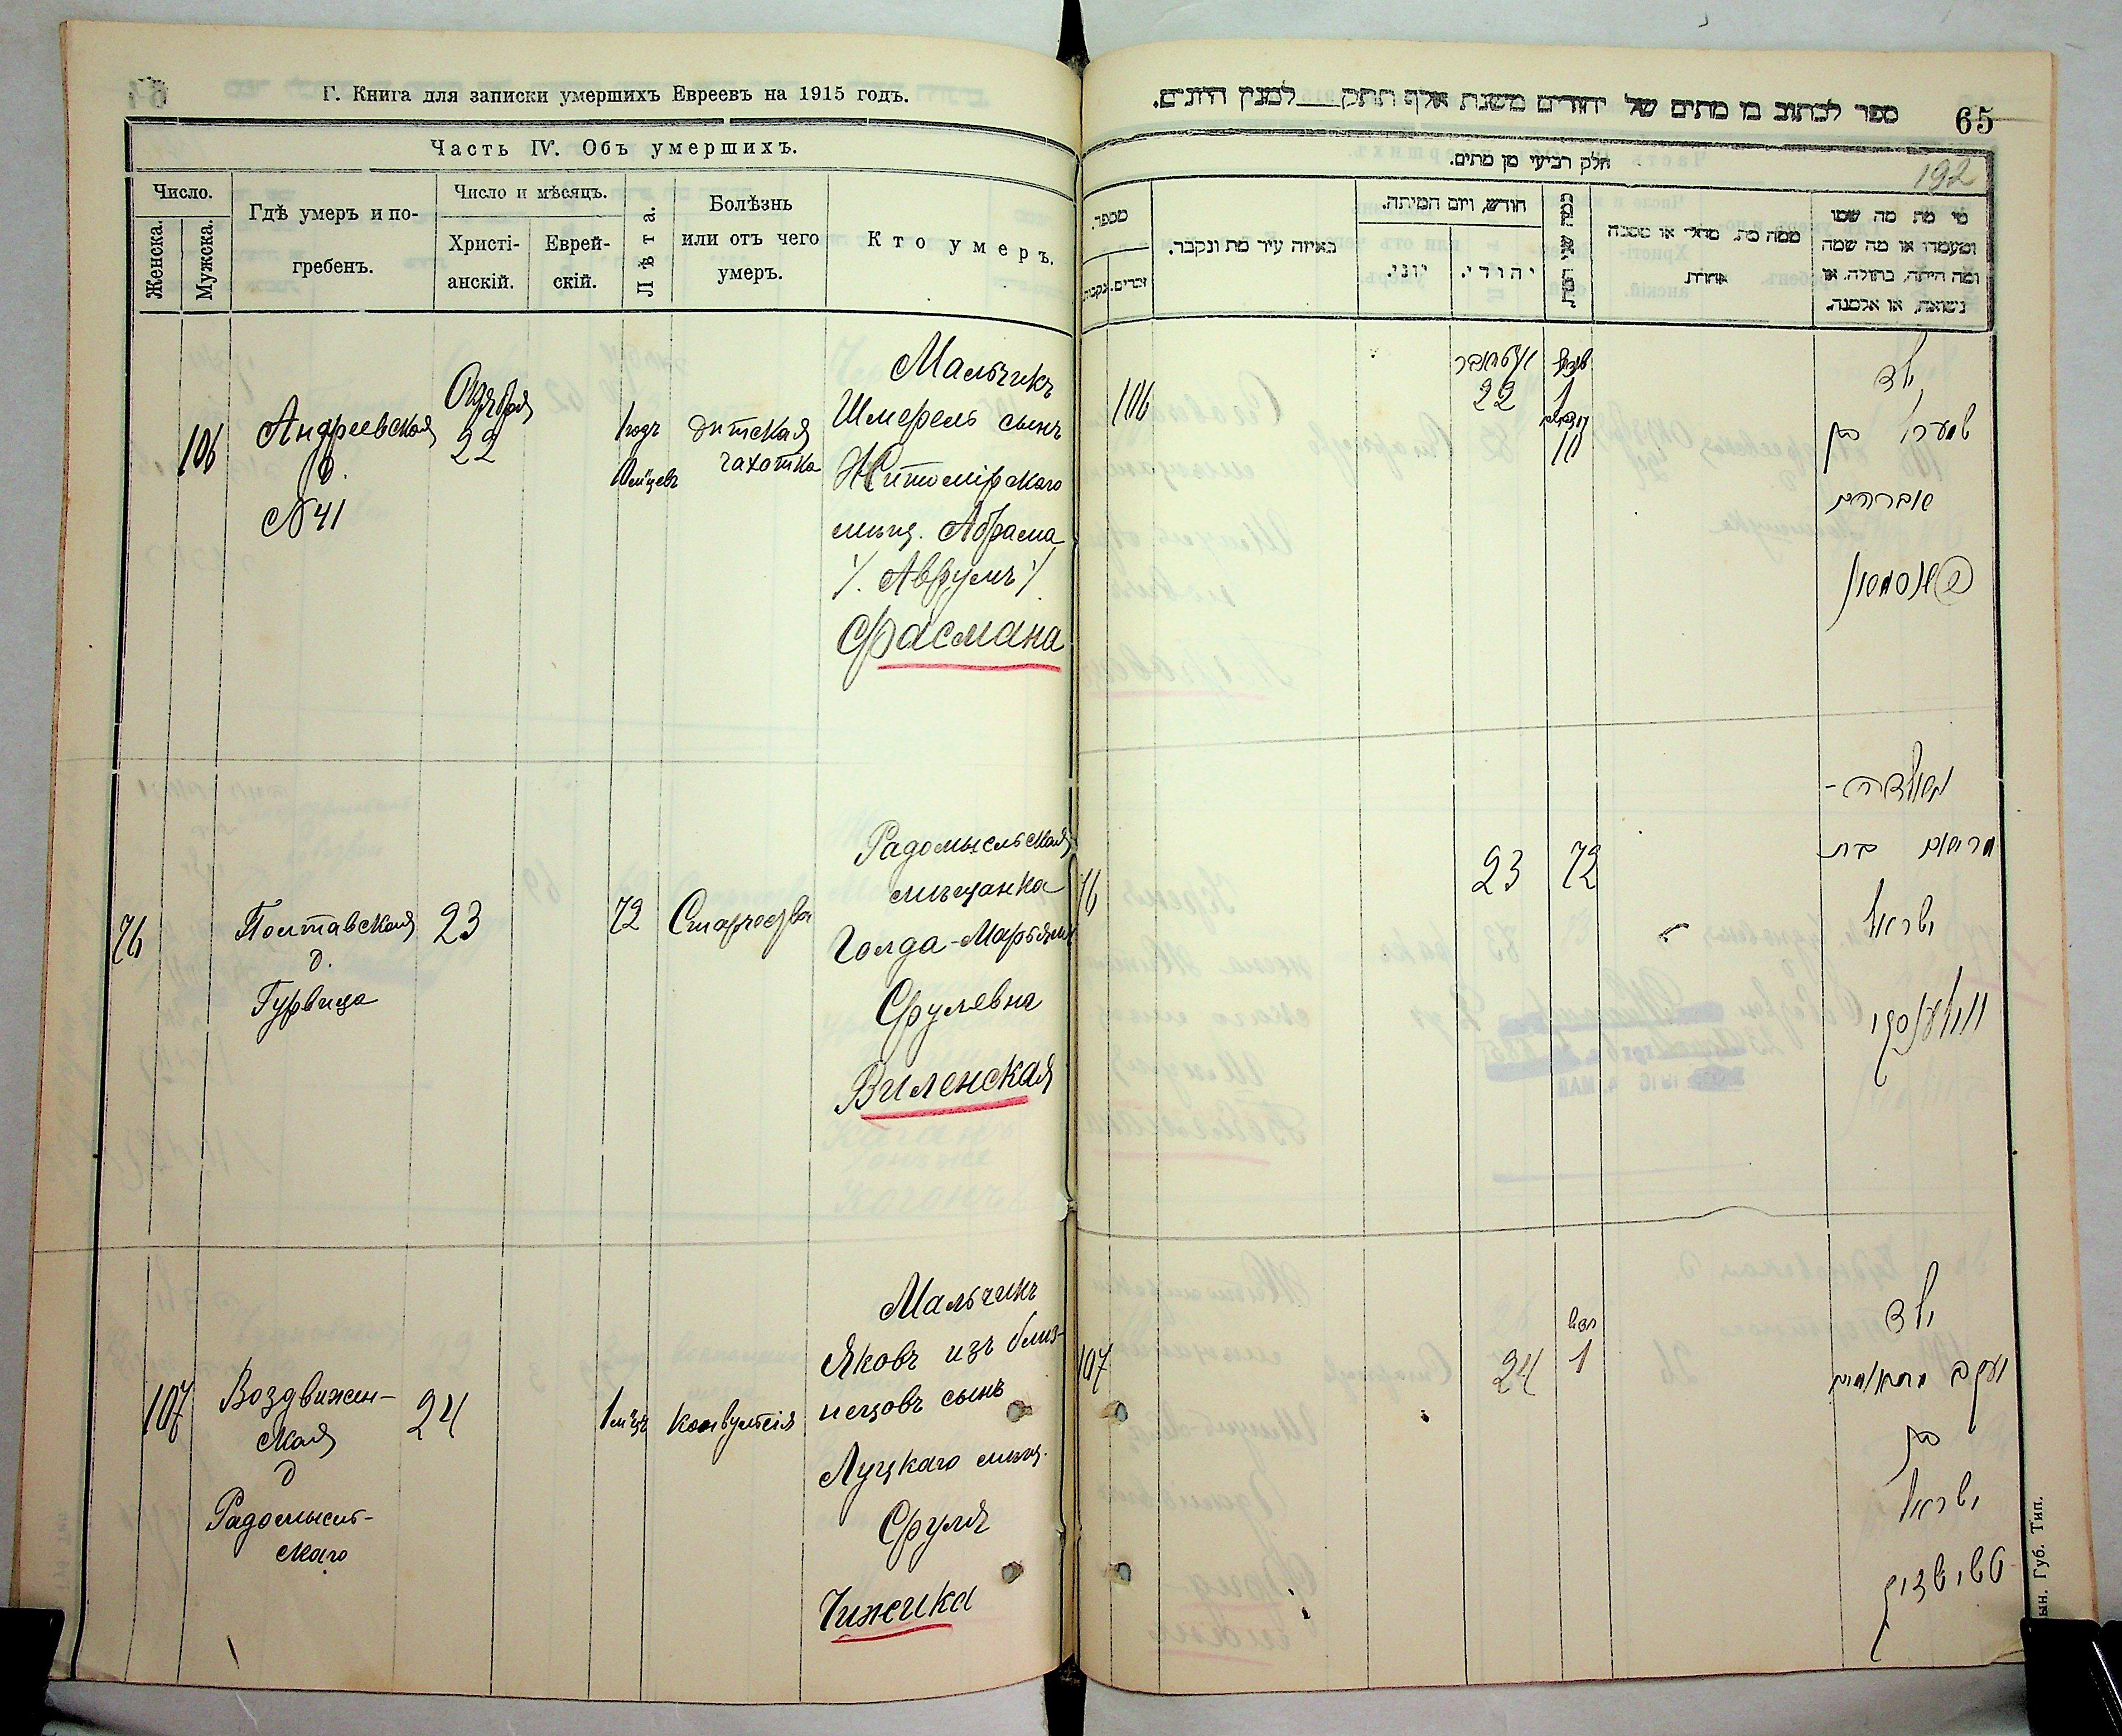 Г. Книга для записки умершихъ Евреевъ на 1915 годъ.
Часть IV. Объ умершихъ.
Число.
Женска.
Мужска.
Гдѣ умеръ и по-
гребенъ.
Число и мѣсяцъ.
Христі-
анскій.
Еврей-
скій.
Лѣта.
Болѣзнь
или отъ чего
умеръ.
Кто умеръ.
106
Андреевская
д.
№41
Октября
22
1 годъ
10 м-цевъ
дѣтская
чахотка
Мальчикъ
Шмерель сынъ
Житомірскаго
мѣщ. Абрама
/. Аврумъ /.
Фасмана
76
Полтавская
д.
Гурвица
23
72
Старчества
Радомысльская
мѣщанка
Голда-Марьямъ
Срулевна
Виленская
107
Воздвижен-
ская
д
Радомысль-
скаго
24
1 м-цъ
Конвульсія
Мальчикъ
Яковъ изъ близ-
нецовъ сынъ
Луцкаго мѣщ.
Сруля
Чижика
ספר לכתוב בו מתים של יהודים משנת אלף תתק למנין היונים.
65
חלק רביעי מן מתים.
192
מספר.
זכרים.
נקבות
באיזה עיר מת ונקבר.
חודש, ויום המיתה.
יוני.
יהודי.
ממה מת, מחלי או מסבה
אחרת
מי מת מה שמו
ומעמדו או מה שמה
ומה היתה, בתולה, או
נשואה, או אלמנה.
106
אקטאבר
22
1
10
ילד
שמערל בן
אברהם
פאסמאן
76
23
72
מרים בת
ישראל
ווילענסקי
107
24
חדש
1
ילד
יעקב מתאומים
בן
ישראל
טשיזשיק
ын. Губ. Тип.